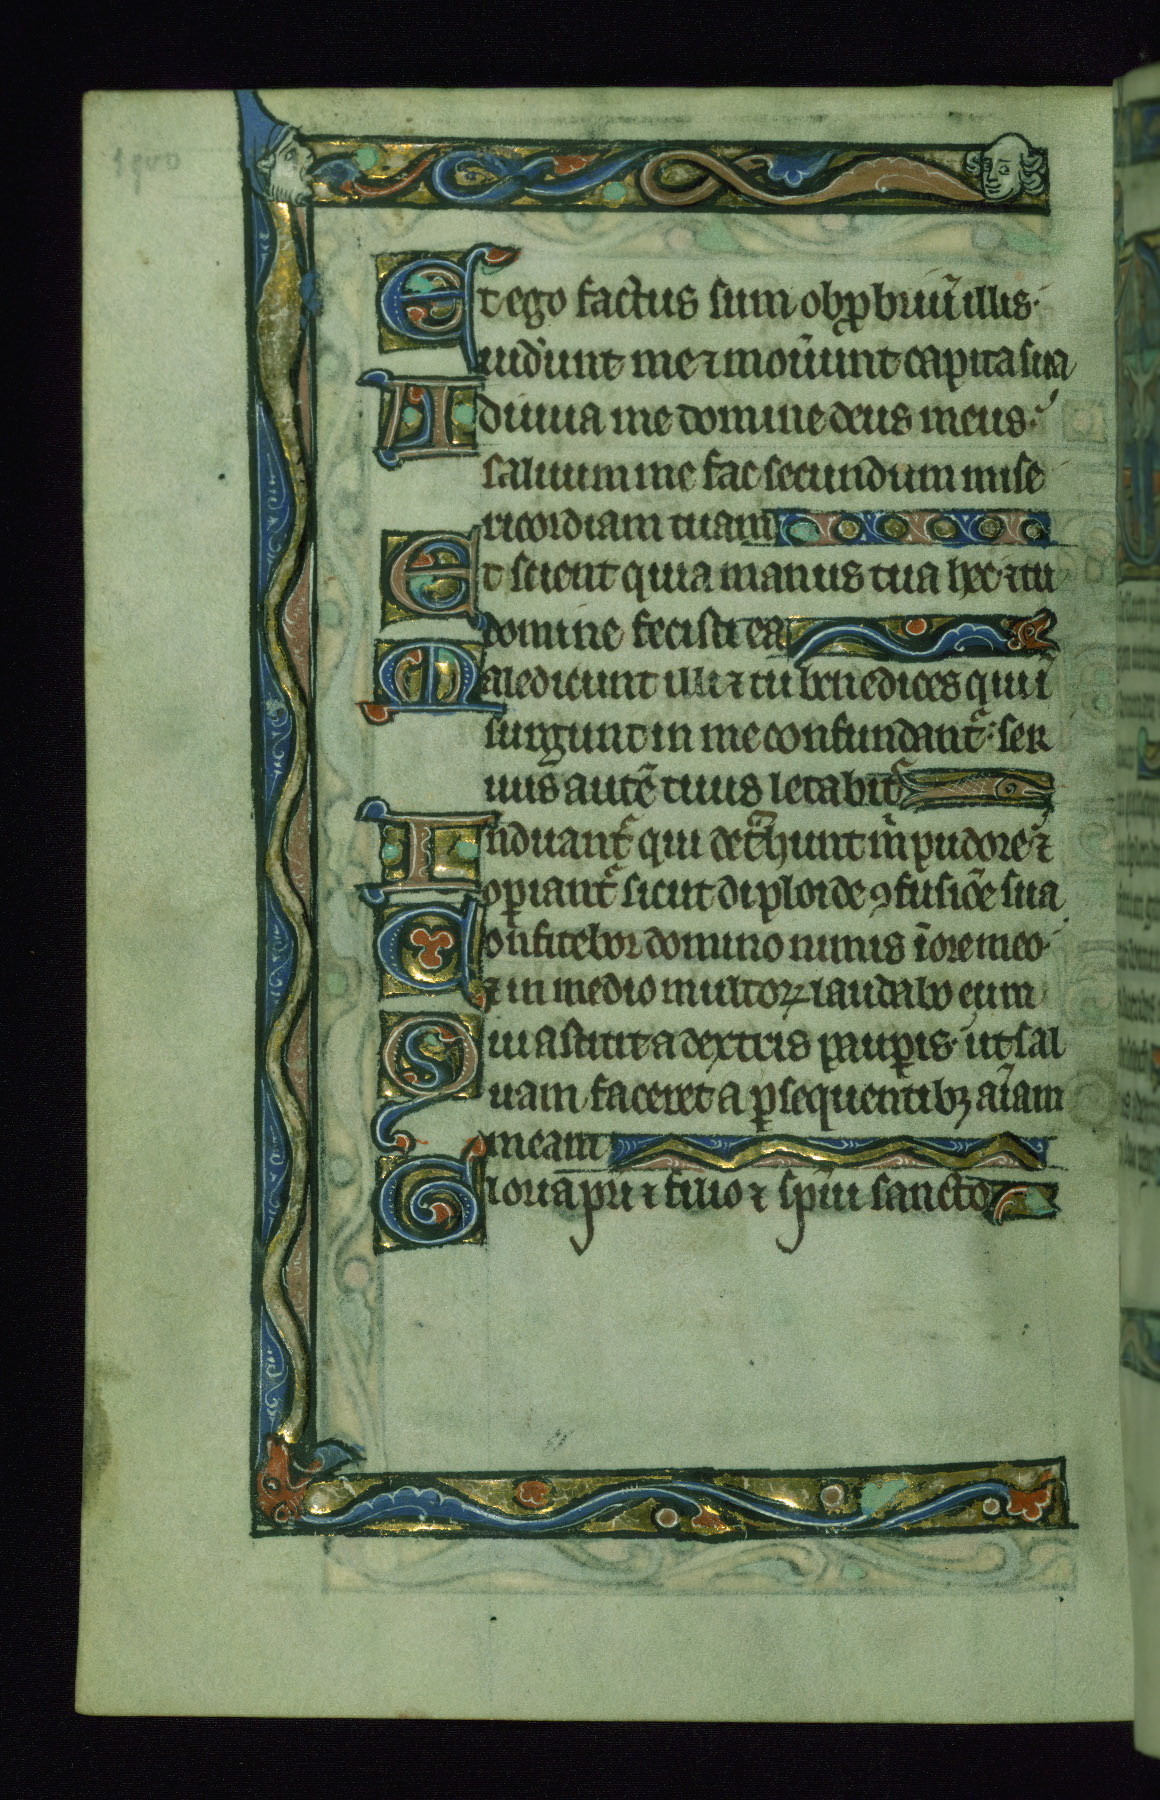 Et ego factus sum obp̱briũ illis·
uid'unt me ⁊ mou'unt capita sua
Adiuua me domine deus meus·
saluum me fac secundum mise
ricordiam tuam
Et scient quia manus tua hec· ⁊ tu
domine fecisti ea
Maledicunt illi ⁊ tu benedices qui ĩ
surgunt in me confundant᷑· ser
uus autẽ tuus letabit᷑
Induant᷑ qui det̃hunt m̃ pudore· ⁊
opiant᷑ sicut diploide ꝯfusiõe sua
Confitebor domino nimis ĩ ore meo·
⁊ in medio multoꝝ laudabo eum
Qui astitit a dextris paup̱is· ut sal
uam faceret a p̱sequentibꝫ aĩam
meam
Gloria pr̃i ⁊ filio ⁊ sp̃ui sancto